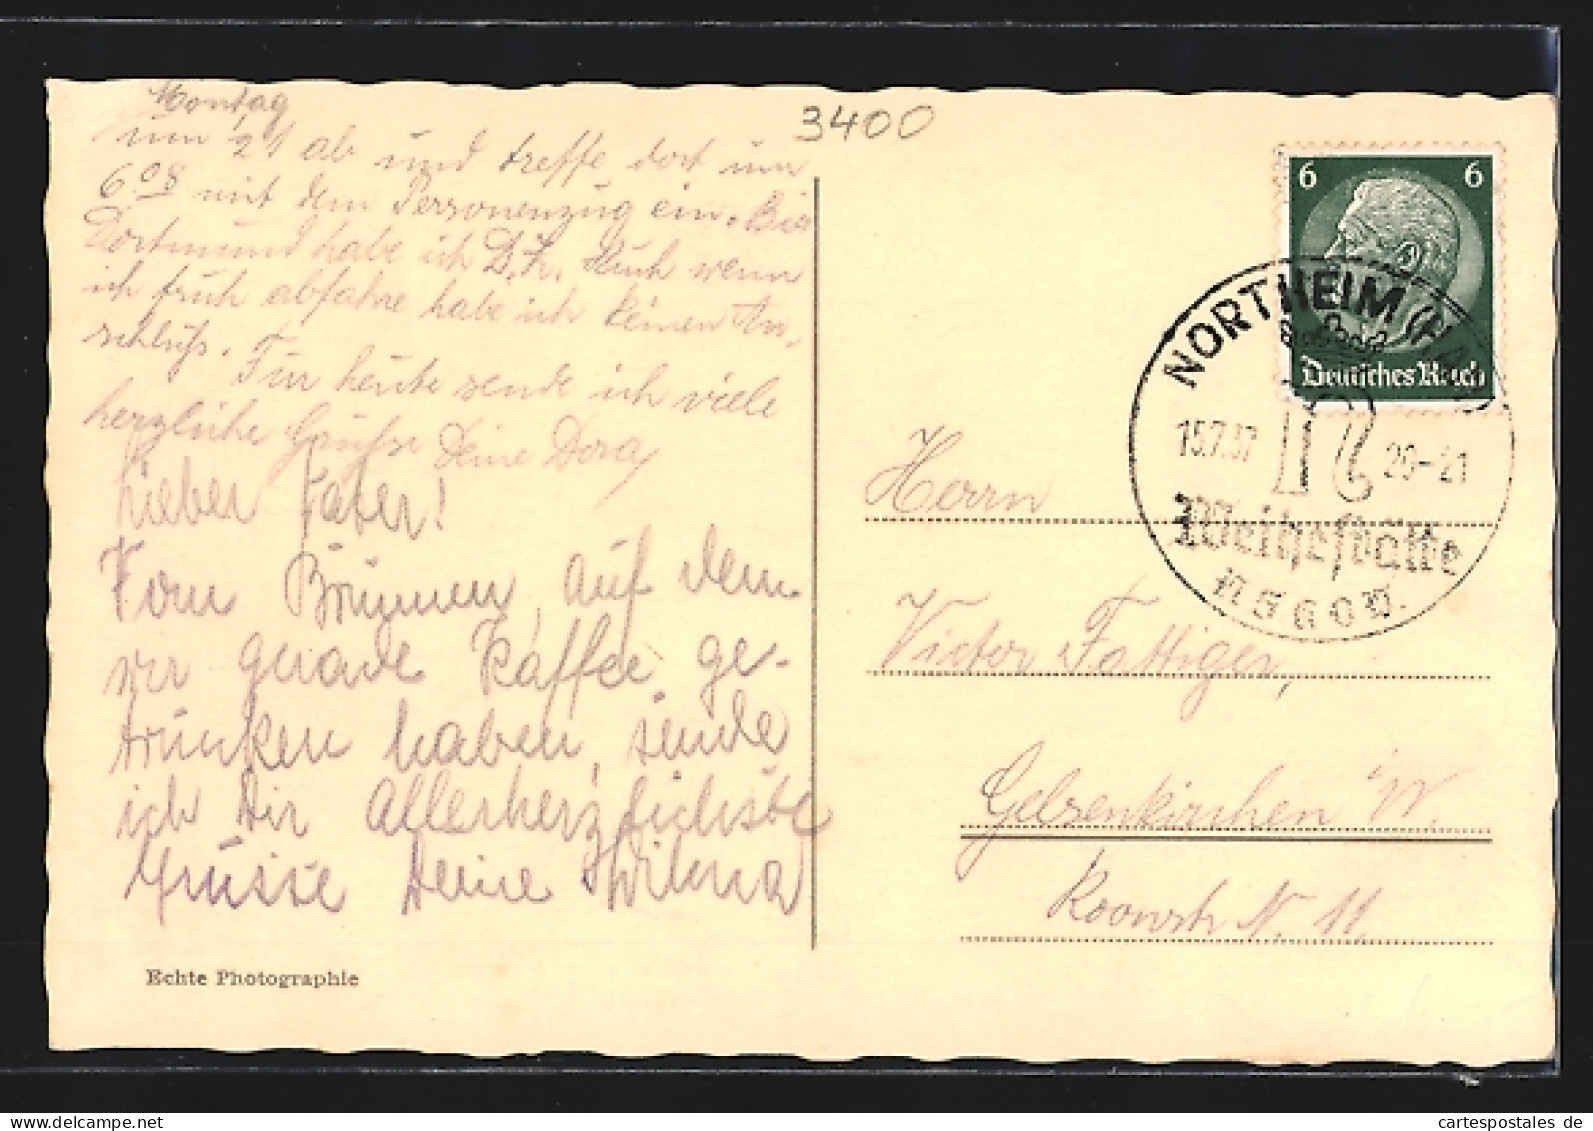 Montag
um 2¹ ab und treffe dort um
6⁰⁸ mit dem Personenzug ein. Bis
Dortmund habe ich D.Z. Auch wenn
ich früh abfahre habe ich keinen An-
schluß. Für heute sende ich viele
herzliche Grüße Deine Dora
Lieber Vater!
Vom Brunnen, auf dem
wir gerade Kaffee ge-
trunken haben, sende
ich Dir allerherzlichste
Grüsse Deine Wilma
Echte Photographie
3400
6 6
Deutsches Reich
NORTHEIM (HAN
15.7.37 20-21
Weihestätte
NSKOV.
Herrn
Victor Fattiger,
Gelsenkirchen W.
Roonstr N. 11.
cartespostales de